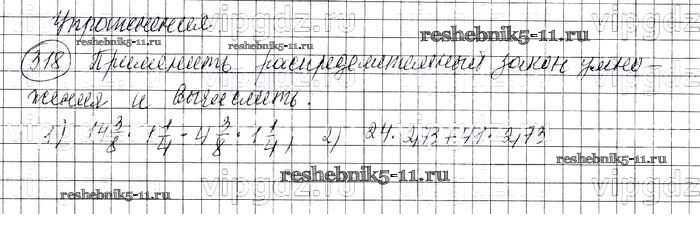 Упрожнения
reshebnik5-11.ru
reshebnik5-11.ru
reshebnik5-11.ru
318 Применить распределительный закон умно-
жения и вычислить.
1) 14 3/8 · 1 1/4 - 4 3/8 · 1 1/4; 2) 24 · 2,73 + 71 · 2,73
reshebnik5-11.ru
reshebnik5-11.ru
reshebnik5-11.ru
vipgdz.ru